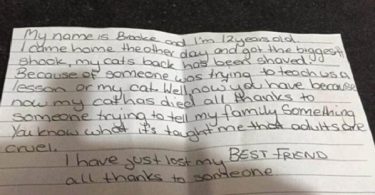 My name is Brooke and I'm 12 years old.
I came home the other day and got the biggest
shock, my cats back has been shaved.
Because of someone was trying to teach us a
lesson or my cat. Well now you have because
now my cat has died all thanks to
someone trying to tell my family Something
You know what it's taught me that adults are
cruel.
I have just lost my BEST FRIEND
all thanks to someone